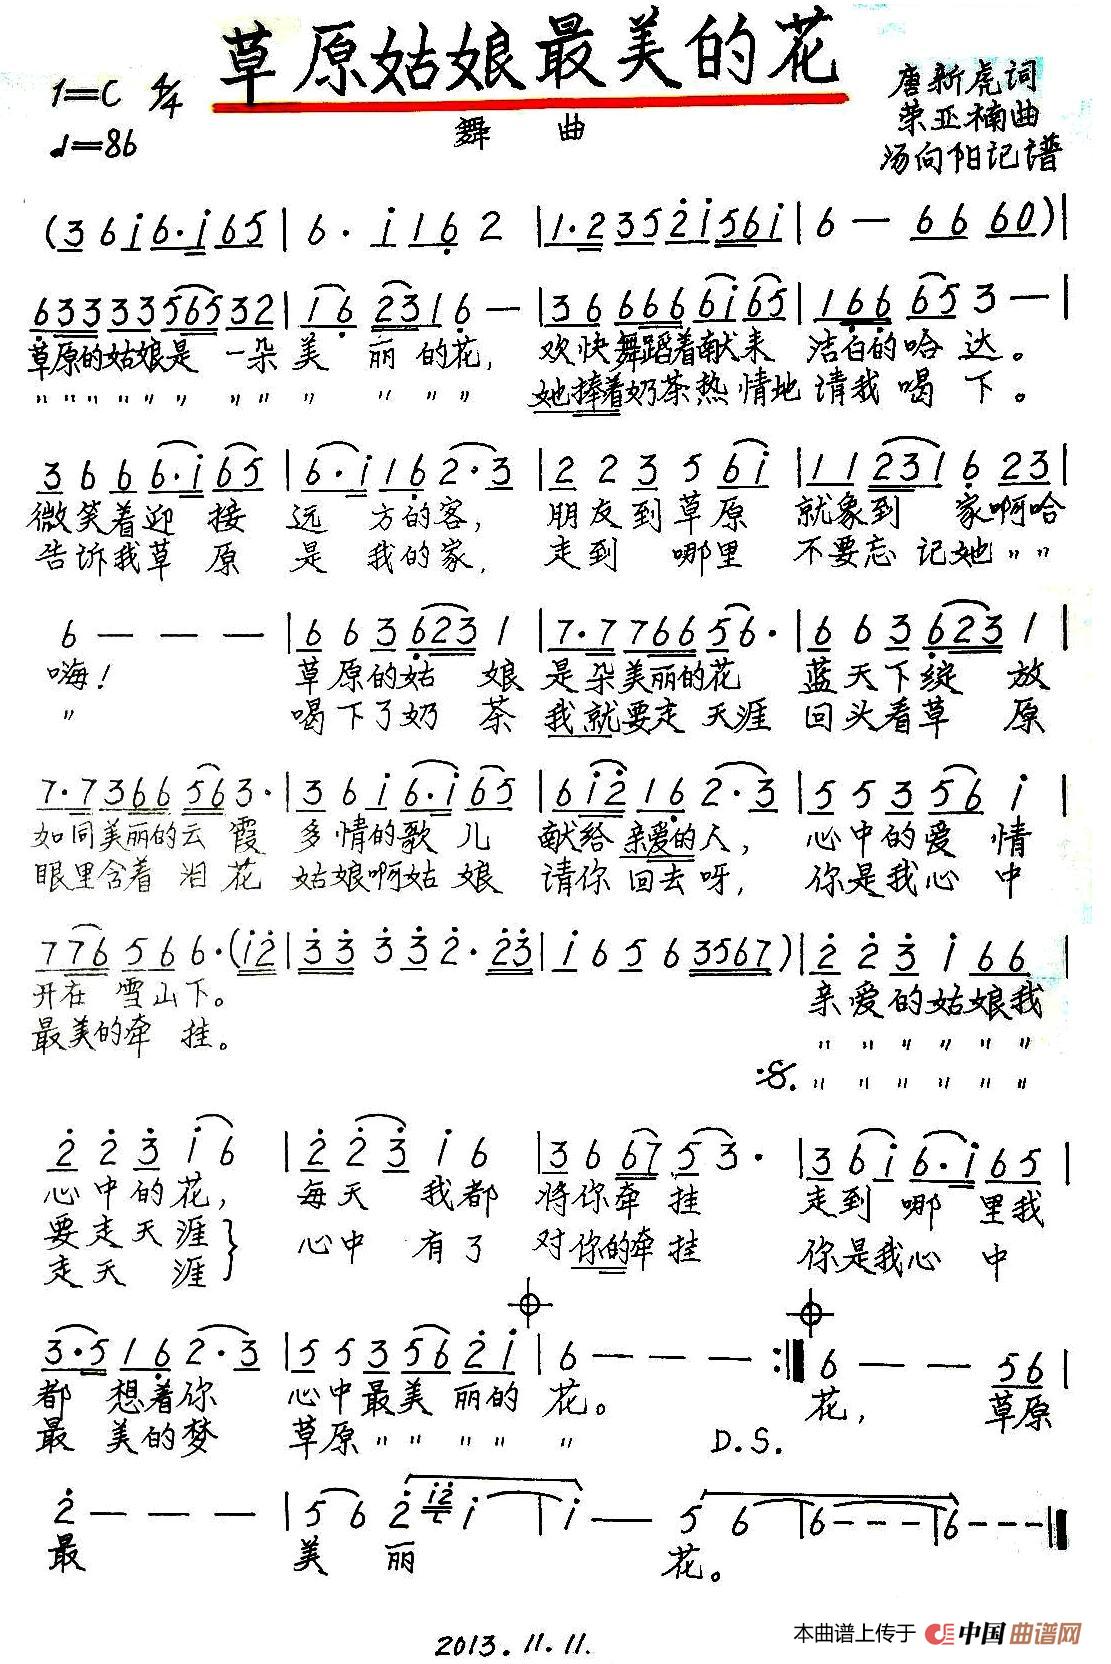 草原姑娘最美的花
1=C 4/4
♩=86
舞 曲
唐新虎词
荣亚楠曲
汤向阳记谱
(3 6 i 6·i 65 | 6· i 1 6 2 | 1·2 35 2i 56i | 6 — 66 60) |
633 33 565 32 | 1 6 23 1 6 — | 36 666 6i 65 | 1 66 65 3 — |
草原的姑娘是 一朵 美 丽 的花, 欢快舞蹈着献来 洁白的哈 达。
〃〃〃〃〃〃 〃〃 〃 〃 〃〃 她捧着奶茶热情地 请我 喝 下。
3 6 6 6·i 65 | 6·i 1 6 2·3 | 2 2 3 5 6i | 1 1 23 1 6 23 |
微笑着迎 接 远 方的客, 朋友到草原 就象到 家啊哈
告诉我草 原 是 我的家, 走到 哪里 不要忘 记她〃〃
6 — — — | 6 6 3 623 1 | 7·7 766 56· | 6 6 3 623 1 |
嗨! 草原的姑 娘 是朵美丽的花 蓝天下绽 放
〃 喝下了奶 茶 我就要走 天涯 回头看草 原
7·7 366 56 3· | 3 6 i 6·i 65 | 6i2 16 2·3 | 5 5 3 56 i |
如同美丽的云 霞 多情的歌 儿 献给 亲爱的人, 心中的爱 情
眼里含着 泪 花 姑娘啊姑 娘 请你 回去呀, 你是我心 中
7 76 5 6 6 6·(i2 | 3 3 3 3 2·23 | i 6 5 6 3567) | 2 2 3 i 66 |
开在 雪山下。 亲爱的姑娘我
最美的牵 挂。 〃 〃 〃 〃 〃 〃
𝄋. 〃 〃 〃 〃 〃 〃
2 2 3 i 6 | 2 2 3 i 6 | 3 6 67 5 3· | 3 6 i 6·i 65 |
心中的花, 每天 我都 将你牵 挂 走到 哪 里我
要走天涯} 心中 有了 对你的牵挂 你是我心 中
走天 涯
3·5 1 6 2·3 | 5 5 3 56 2 i | 6 — — — :‖ 6 — — 56 |
都 想着你 心中最美 丽的 花。 花, 草原
最 美的梦 草原〃 〃 〃 〃 〃 D.S.
2 — — — | 5 6 2 i2 i | i — 5 6 | 6 - - - | 6 - - - ‖
最 美 丽 花。
2013.11.11.
本曲谱上传于 中国曲谱网